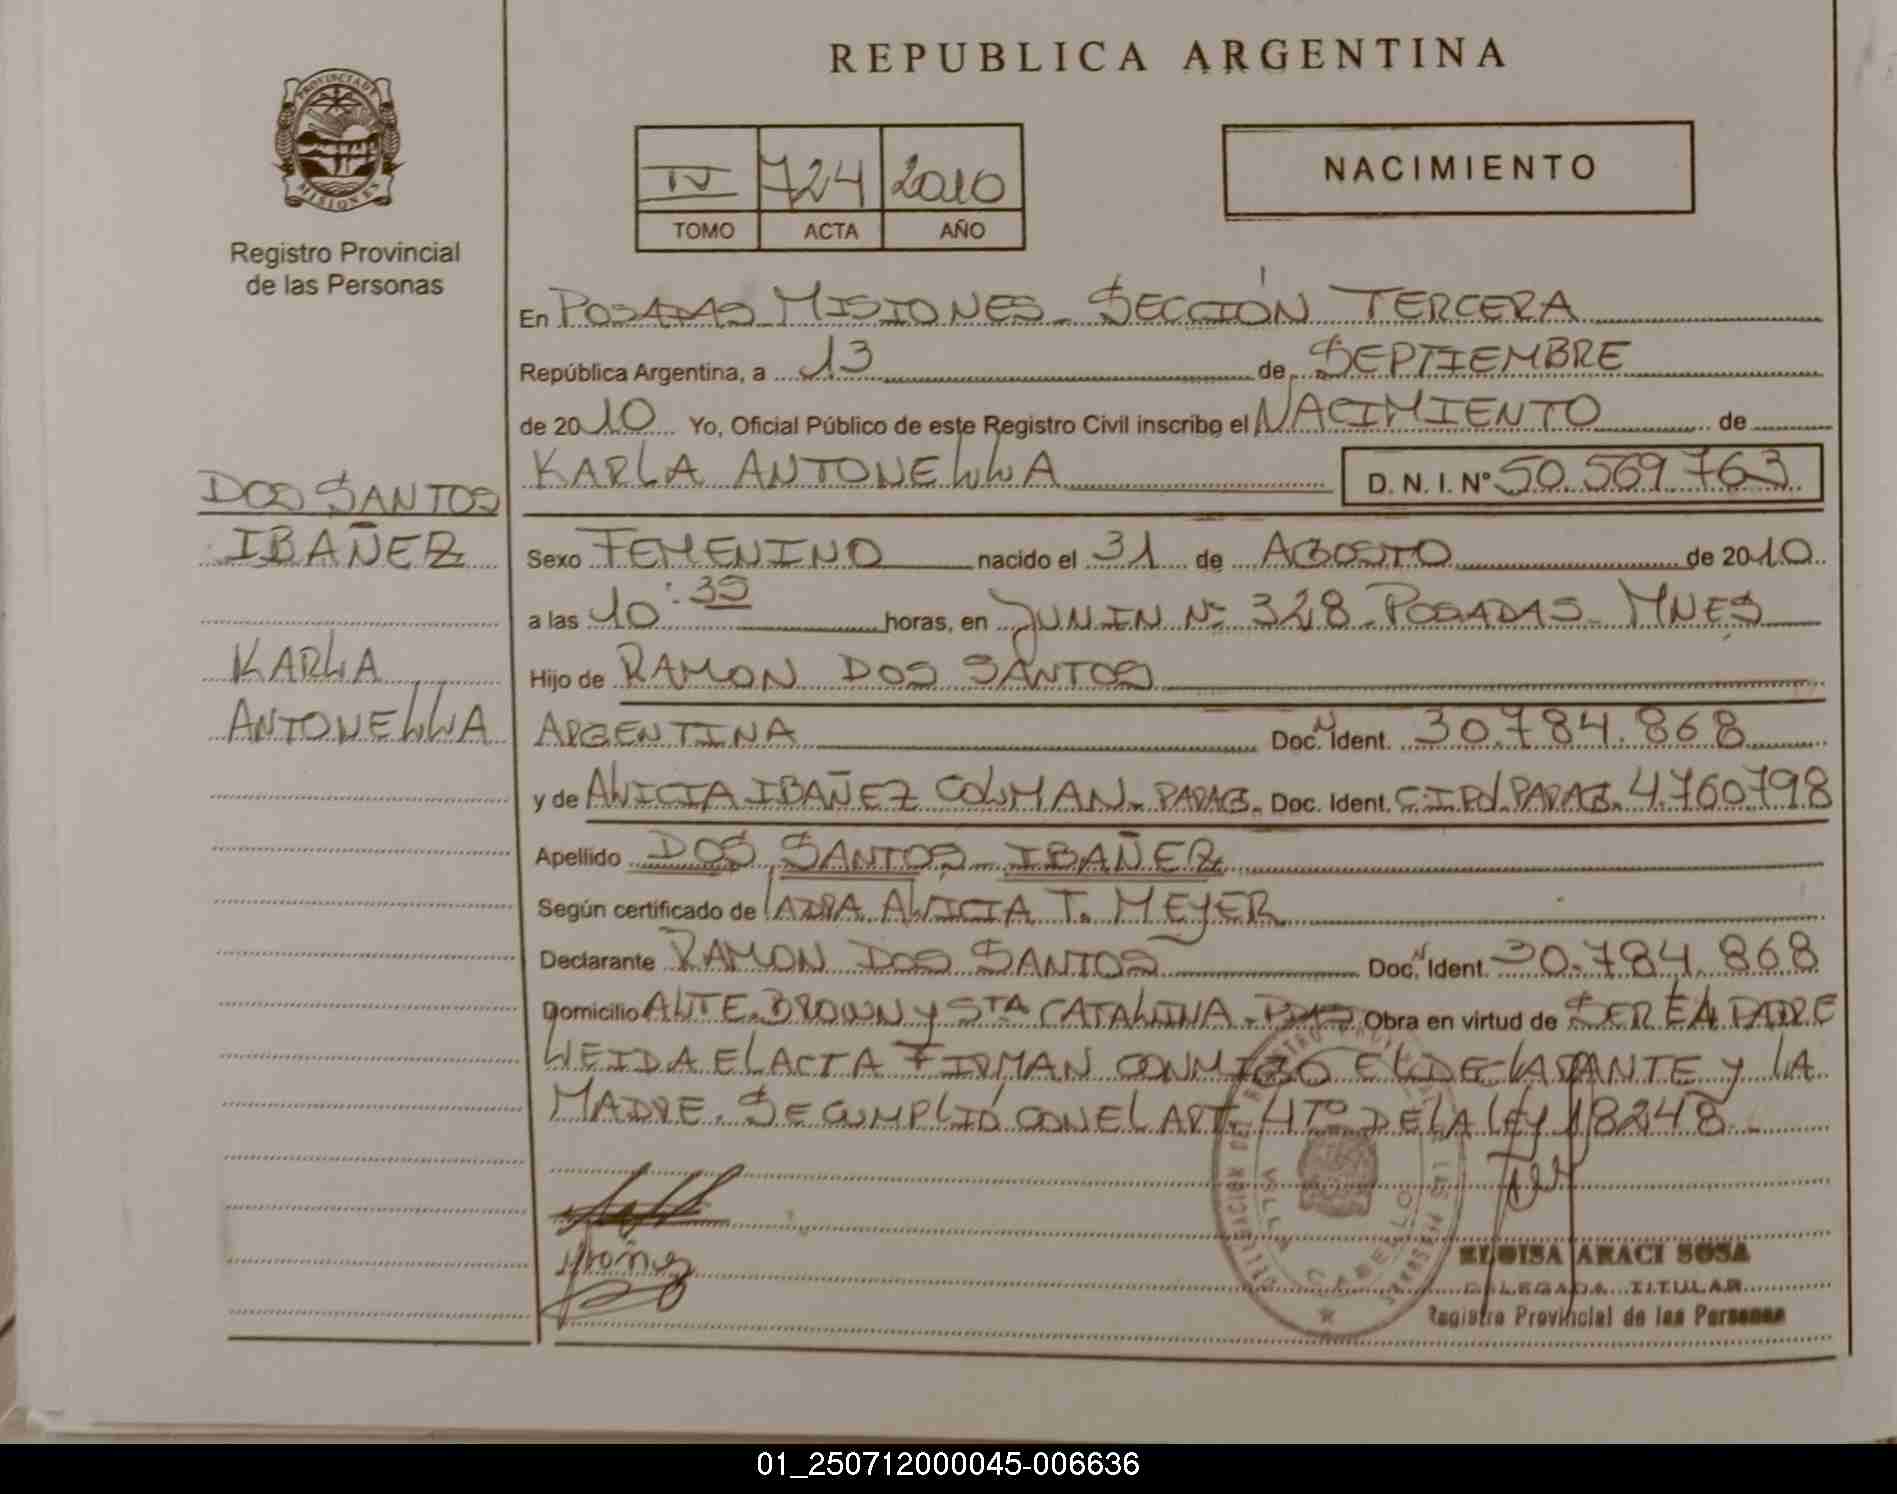 REPUBLICA ARGENTINA
PROVINCIA DE MISIONES
Registro Provincial
de las Personas
IV 724 2010
TOMO ACTA AÑO
NACIMIENTO
En POSADAS MISIONES - SECCIÓN TERCERA
República Argentina, a 13 de SEPTIEMBRE
de 2010 Yo, Oficial Público de este Registro Civil inscribo el NACIMIENTO de
KARLA ANTONELLA D. N. I. Nº 50.569.763
DOS SANTOS
IBAÑEZ
KARLA
ANTONELLA
Sexo FEMENINO nacido el 31 de AGOSTO de 2010
a las 10:35 horas, en JUNIN Nº 328 - POSADAS - MNES
Hijo de RAMON DOS SANTOS
ARGENTINA Doc. Ident. 30.784.868
y de ALICIA IBAÑEZ COLMAN - PARAG. Doc. Ident. C.I.POL.PARAG. 4.760798
Apellido DOS SANTOS IBAÑEZ
Según certificado de ALICIA T. MEYER
Declarante RAMON DOS SANTOS Doc. Ident. 30.784.868
Domicilio ALTE. BROWN y STA CATALINA - PDAS Obra en virtud de SER EL PADRE
LEIDA EL ACTA FIRMAN CONMIGO EL DECLARANTE Y LA
MADRE. SE CUMPLIÓ CON EL ART. 4TO DE LA LEY 18248
Ibañez
VILLA CABELLO
ELOISA ARACI SOSA
DELEGADA TITULAR
Registro Provincial de las Personas
01_250712000045-006636